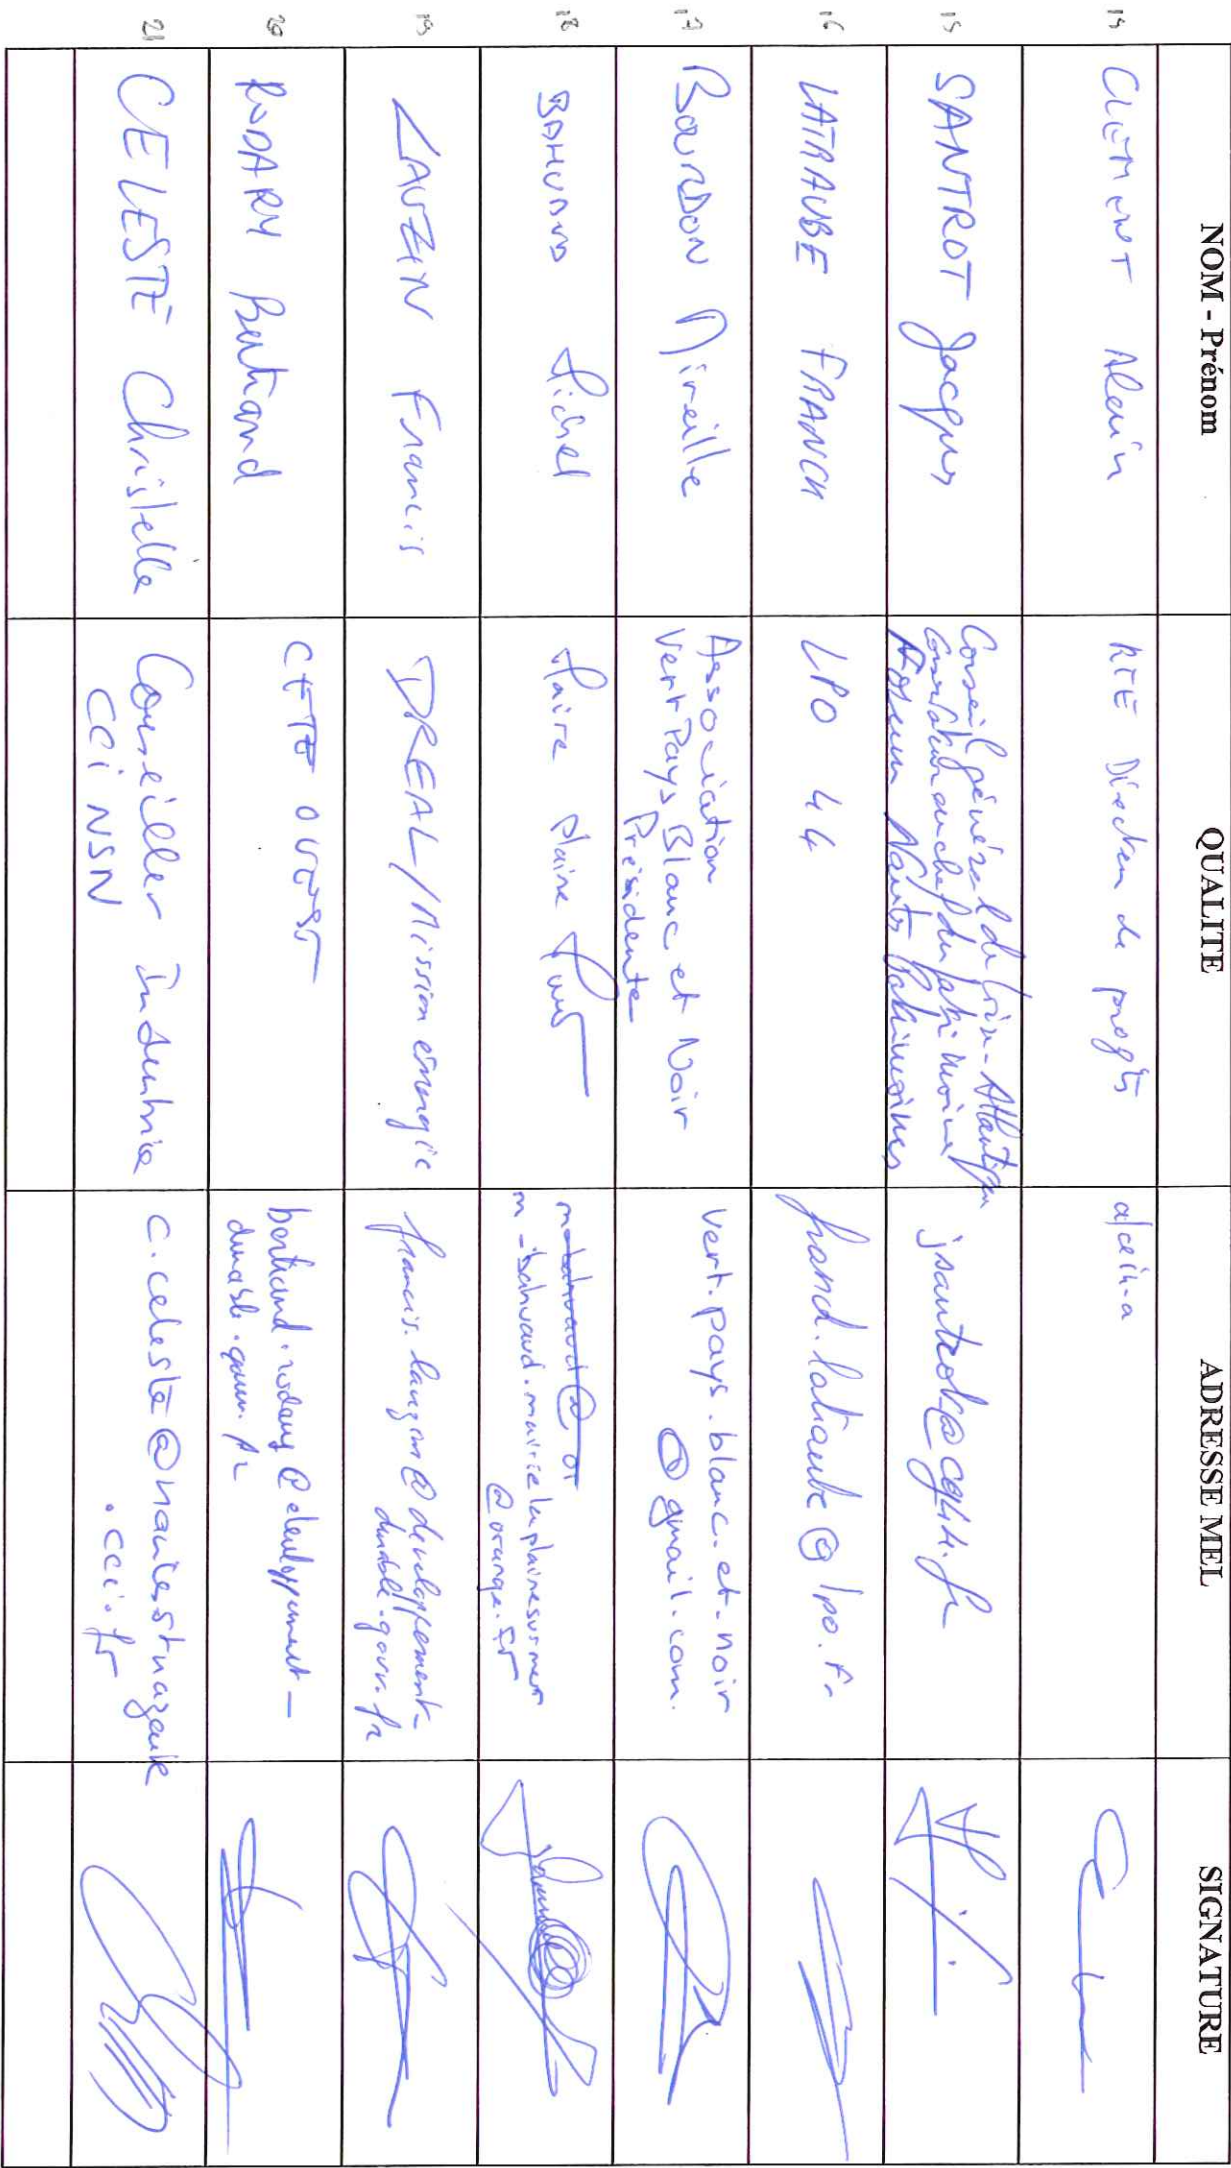 NOM - Prénom QUALITE ADRESSE MEL SIGNATURE
14 CLÉMENT Alain RTE Directeur de projets
15 SANTROT Jacques Conseil général de Loire-Atlantique jsantrot@cg44.fr
Conservateur en chef du patrimoine
16 LATRAUBE FRANCK LPO 44 franck.latraube@lpo.fr
17 BOURDON Mireille Association vert.pays.blanc.et.noir
Vert Pays Blanc et Noir @gmail.com.
Présidente
18 BAHUAUD Michel Maire Plaine
m-bahuaud.mairielaplainesurmer
@orange.fr
19 LAUZIN Francis DREAL/Mission énergie francis.lauzin@developpement-
durable.gouv.fr
20 RODARY Bertrand CETE OUEST bertrand.rodary@developpement-
durable.gouv.fr
21 CELESTE Christelle Conseiller Industrie c.celeste@nantesstnazaire
CCI NSN .cci.fr